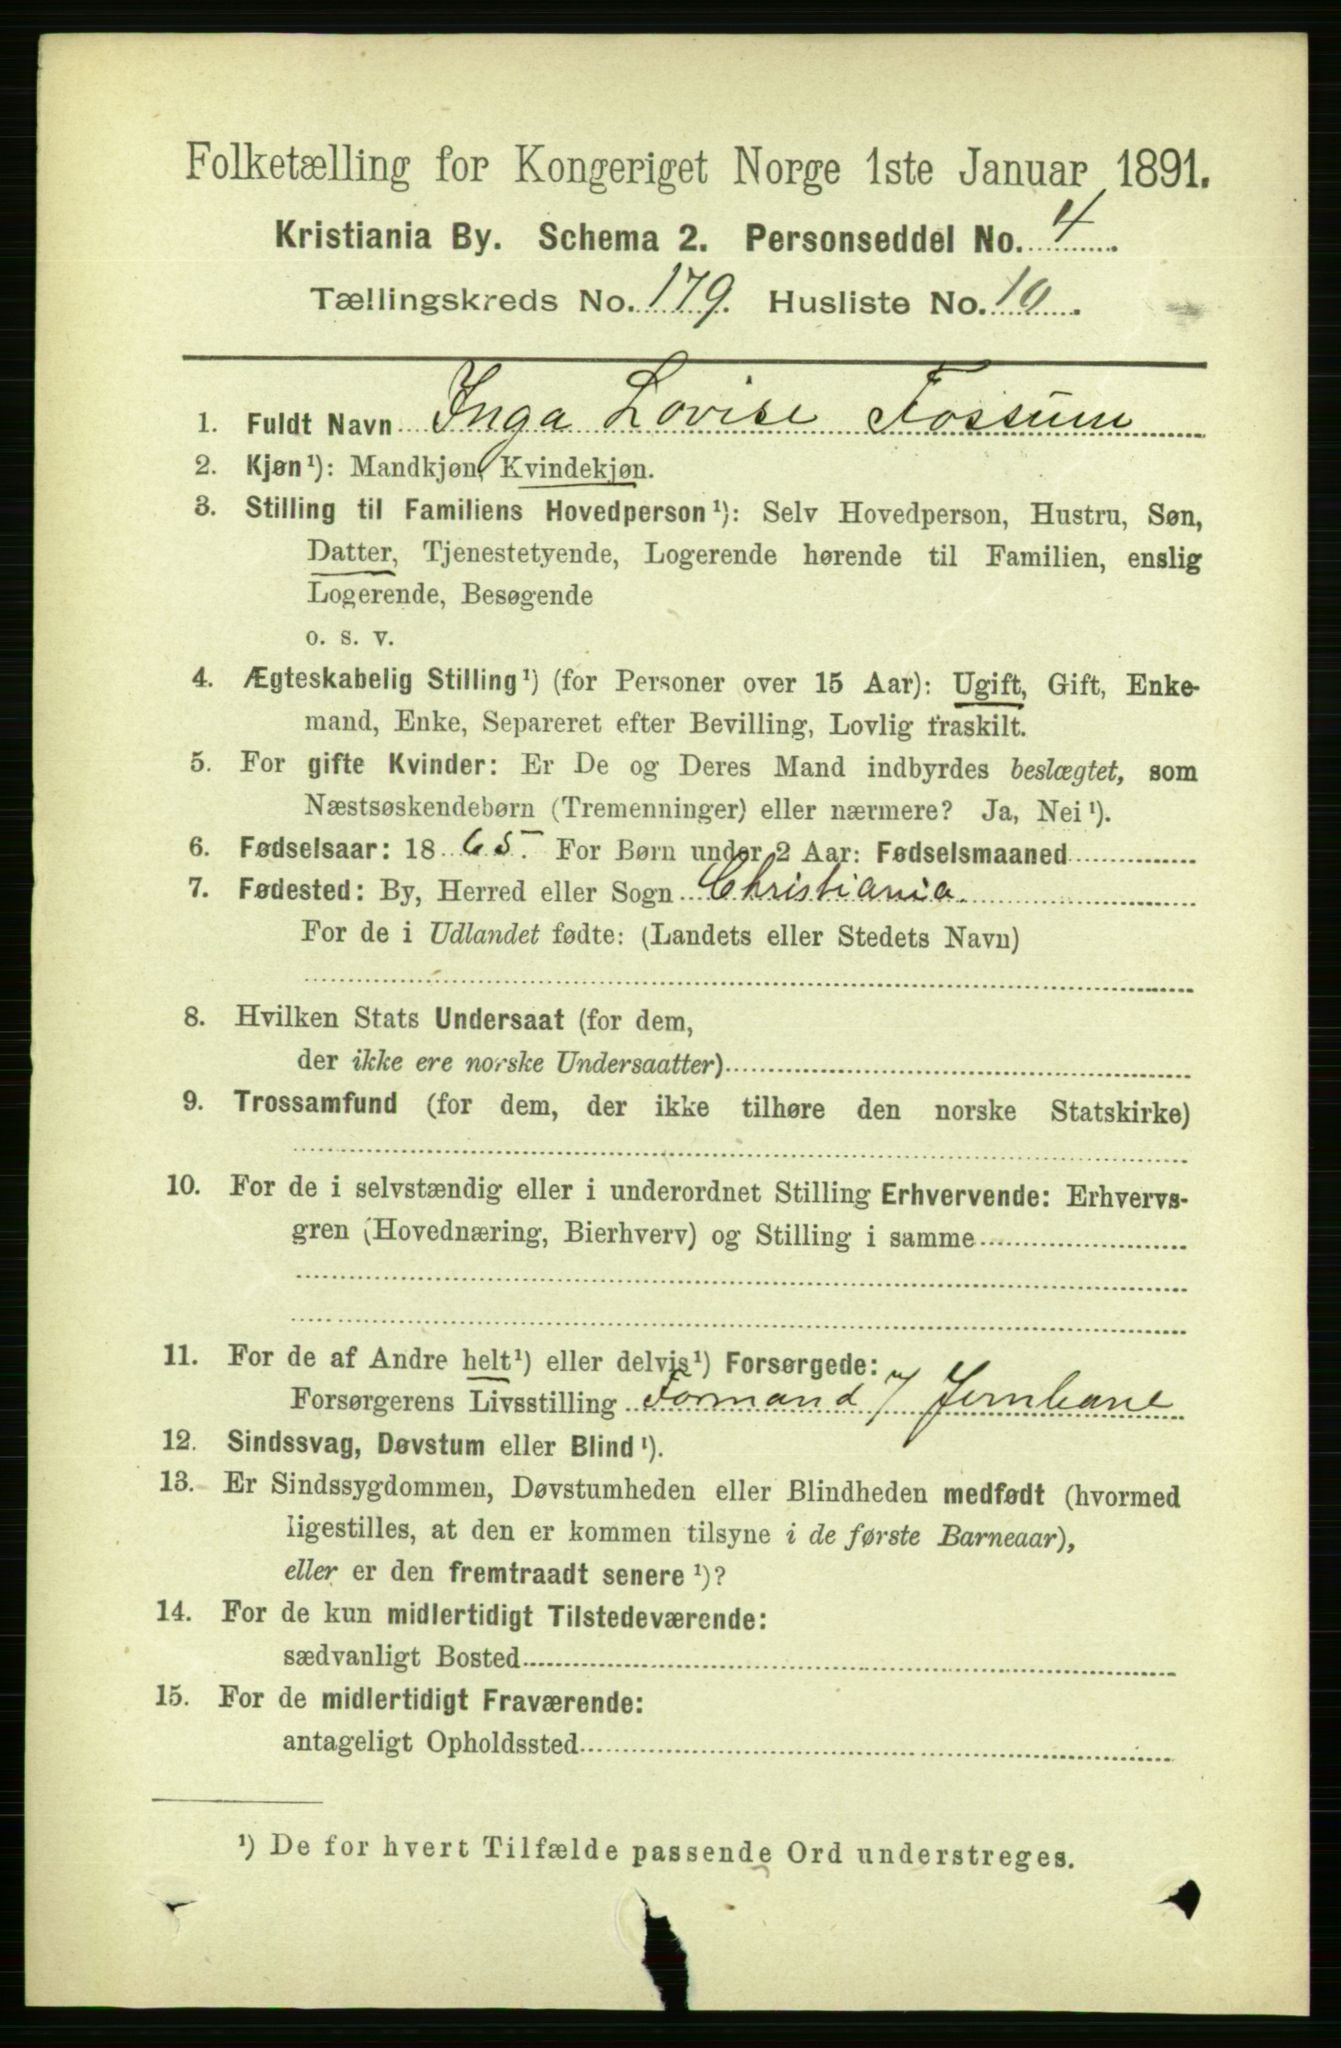 Folketælling for Kongeriget Norge 1ste Januar 1891.
Kristiania By. Schema 2. Personseddel No. 4
Tællingskreds No. 179. Husliste No. 10.
1. Fuldt Navn Inga Lovise Fossum
2. Kjøn¹): Mandkjøn, Kvindekjøn.
3. Stilling til Familiens Hovedperson¹): Selv Hovedperson, Hustru, Søn,
Datter, Tjenestetyende, Logerende hørende til Familien, enslig
Logerende, Besøgende
o. s. v.
4. Ægteskabelig Stilling¹) (for Personer over 15 Aar): Ugift, Gift, Enke-
mand, Enke, Separeret efter Bevilling, Lovlig fraskilt.
5. For gifte Kvinder: Er De og Deres Mand indbyrdes beslægtet, som
Næstsøskendebørn (Tremenninger) eller nærmere? Ja, Nei¹).
6. Fødselsaar: 1865. For Børn under 2 Aar: Fødselsmaaned
7. Fødested: By, Herred eller Sogn Christiania.
For de i Udlandet fødte: (Landets eller Stedets Navn)
8. Hvilken Stats Undersaat (for dem,
der ikke ere norske Undersaatter)
9. Trossamfund (for dem, der ikke tilhøre den norske Statskirke)
10. For de i selvstændig eller i underordnet Stilling Erhvervende: Erhvervs-
gren (Hovednæring, Bierhverv) og Stilling i samme
11. For de af Andre helt¹) eller delvis¹) Forsørgede:
Forsørgerens Livsstilling Formand / Jernbane
12. Sindssvag, Døvstum eller Blind¹).
13. Er Sindssygdommen, Døvstumheden eller Blindheden medfødt (hvormed
ligestilles, at den er kommen tilsyne i de første Barneaar),
eller er den fremtraadt senere¹)?
14. For de kun midlertidigt Tilstedeværende:
sædvanligt Bosted
15. For de midlertidigt Fraværende:
antageligt Opholdssted
¹) De for hvert Tilfælde passende Ord understreges.